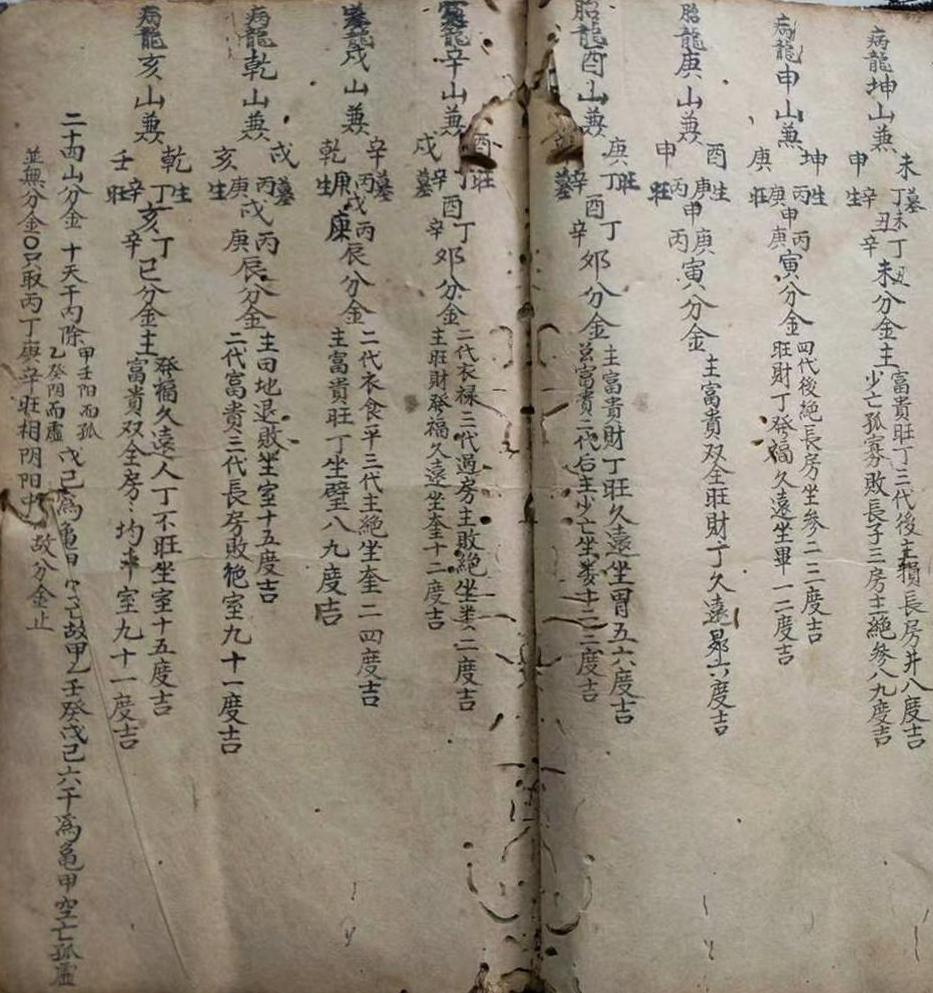 病龍坤山兼
未
申
丁墓
辛生
未丁
丑辛
未分金
主
富貴旺丁三代後主損長房井八度吉
少亡孤寡敗長子三房主絕參八九度吉
病龍申山兼
坤
庚
丙生
庚旺
申丙
庚
寅分金
四代後絕長房坐參二三度吉
旺財丁發福久遠坐畢一二度吉
胎龍庚山兼
酉
申
庚生
丙旺
申庚
丙
寅分金
主富貴双全旺財丁久遠昴六度吉
胎龍酉山兼
庚
丁旺
辛墓
酉丁
辛
卯分金
主富貴財丁旺久遠坐胃五六度吉
富貴二代后主少亡坐婁十二三度吉
龍辛山兼
酉
戌
丁旺
墓
酉丁
辛
卯分金
二代衣祿三代過房主敗絕坐婁二度吉
主旺財發福久遠坐奎十二度吉
墓龍戌山兼
辛
乾
丙墓
庚生
戌丙
庚
辰分金
二代衣食平三代主絕坐奎二四度吉
主富貴旺丁坐壁八九度吉
病龍乾山兼
戌
亥
丙墓
庚生
戌丙
庚
辰分金
主田地退敗坐室十五度吉
二代富貴三代長房敗絕室九十一度吉
病龍亥山兼
乾
壬
丁生
辛旺
亥丁
辛
巳分金
主
發福久遠人丁不旺坐室十五度吉
富貴双全房房均平室九十一度吉
二十四山分金 十天干內除
甲壬阳而孤
乙癸阴而虛
戊己為龜甲空亡故甲乙壬癸戊己六干為龜甲空亡孤虛
並無分金○只取丙丁庚辛旺相阴阳故分金止